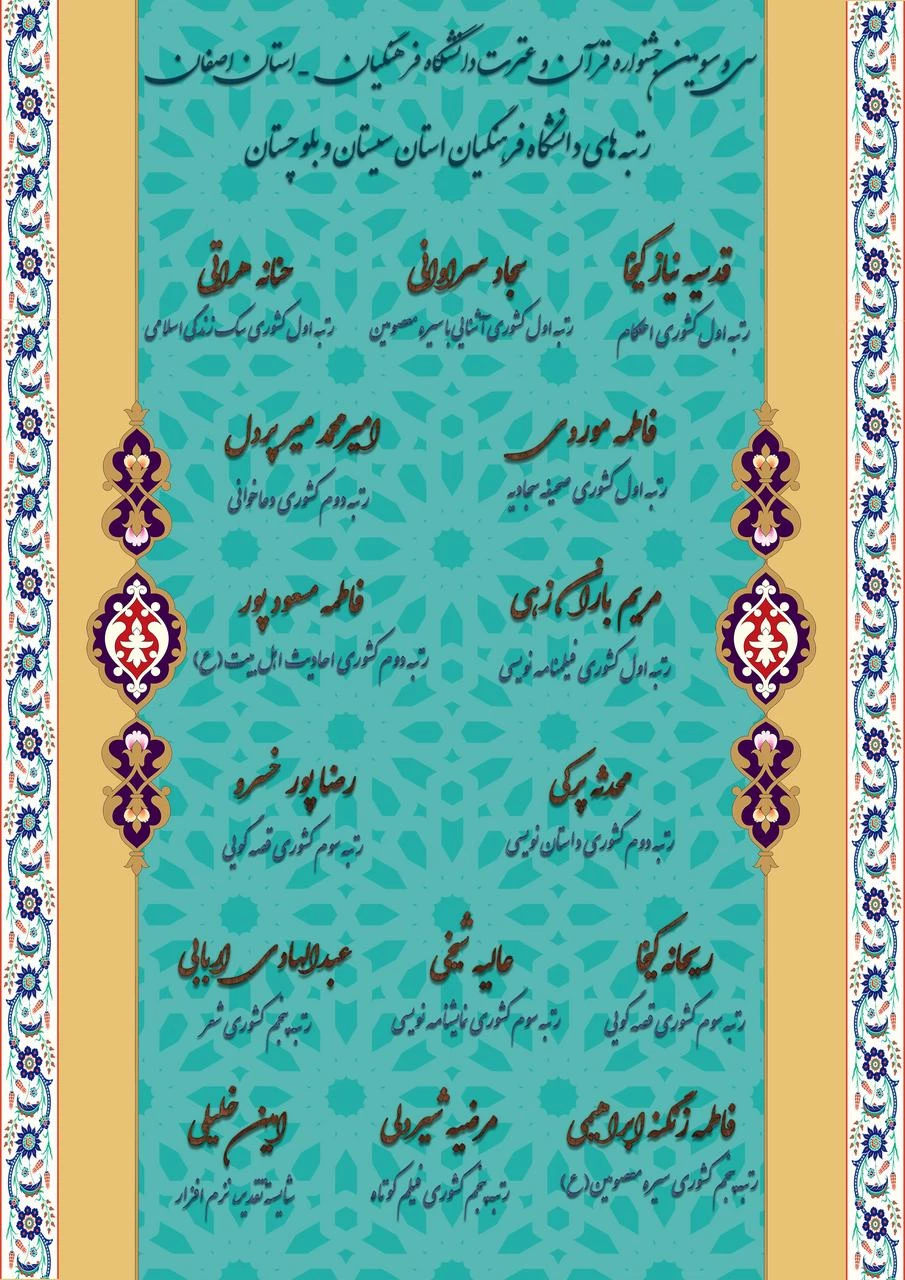 سی و سومین جشنواره قرآن و عترت دانشگاه فرهنگیان _ استان اصفهان
رتبه های دانشگاه فرهنگیان استان سیستان و بلوچستان
قدسیه نیاز کیخا
رتبه اول کشوری احکام
سجاد سراوانی
رتبه اول کشوری آشنایی با سیره معصومین
حنانه هراتی
رتبه اول کشوری سبک زندگی اسلامی
فاطمه موروی
رتبه اول کشوری صحیفه سجادیه
امیرمحمد میر پردل
رتبه دوم کشوری دعاخوانی
مریم باران زهی
رتبه اول کشوری فیلمنامه نویسی
فاطمه مسعود پور
رتبه دوم کشوری احادیث اهل بیت (ع)
محدثه پرکی
رتبه دوم کشوری داستان نویسی
رضا پور خسرو
رتبه سوم کشوری قصه گویی
ریحانه کیخا
رتبه سوم کشوری قصه گویی
عالیه شیخی
رتبه سوم کشوری نمایشنامه نویسی
عبدالهادی اربابی
رتبه پنجم کشوری شعر
فاطمه زنگنه ابراهیمی
رتبه پنجم کشوری سیره معصومین (ع)
مرضیه شیرولی
رتبه پنجم کشوری فیلم کوتاه
امین خلیلی
شایسته تقدیر، نرم افزار